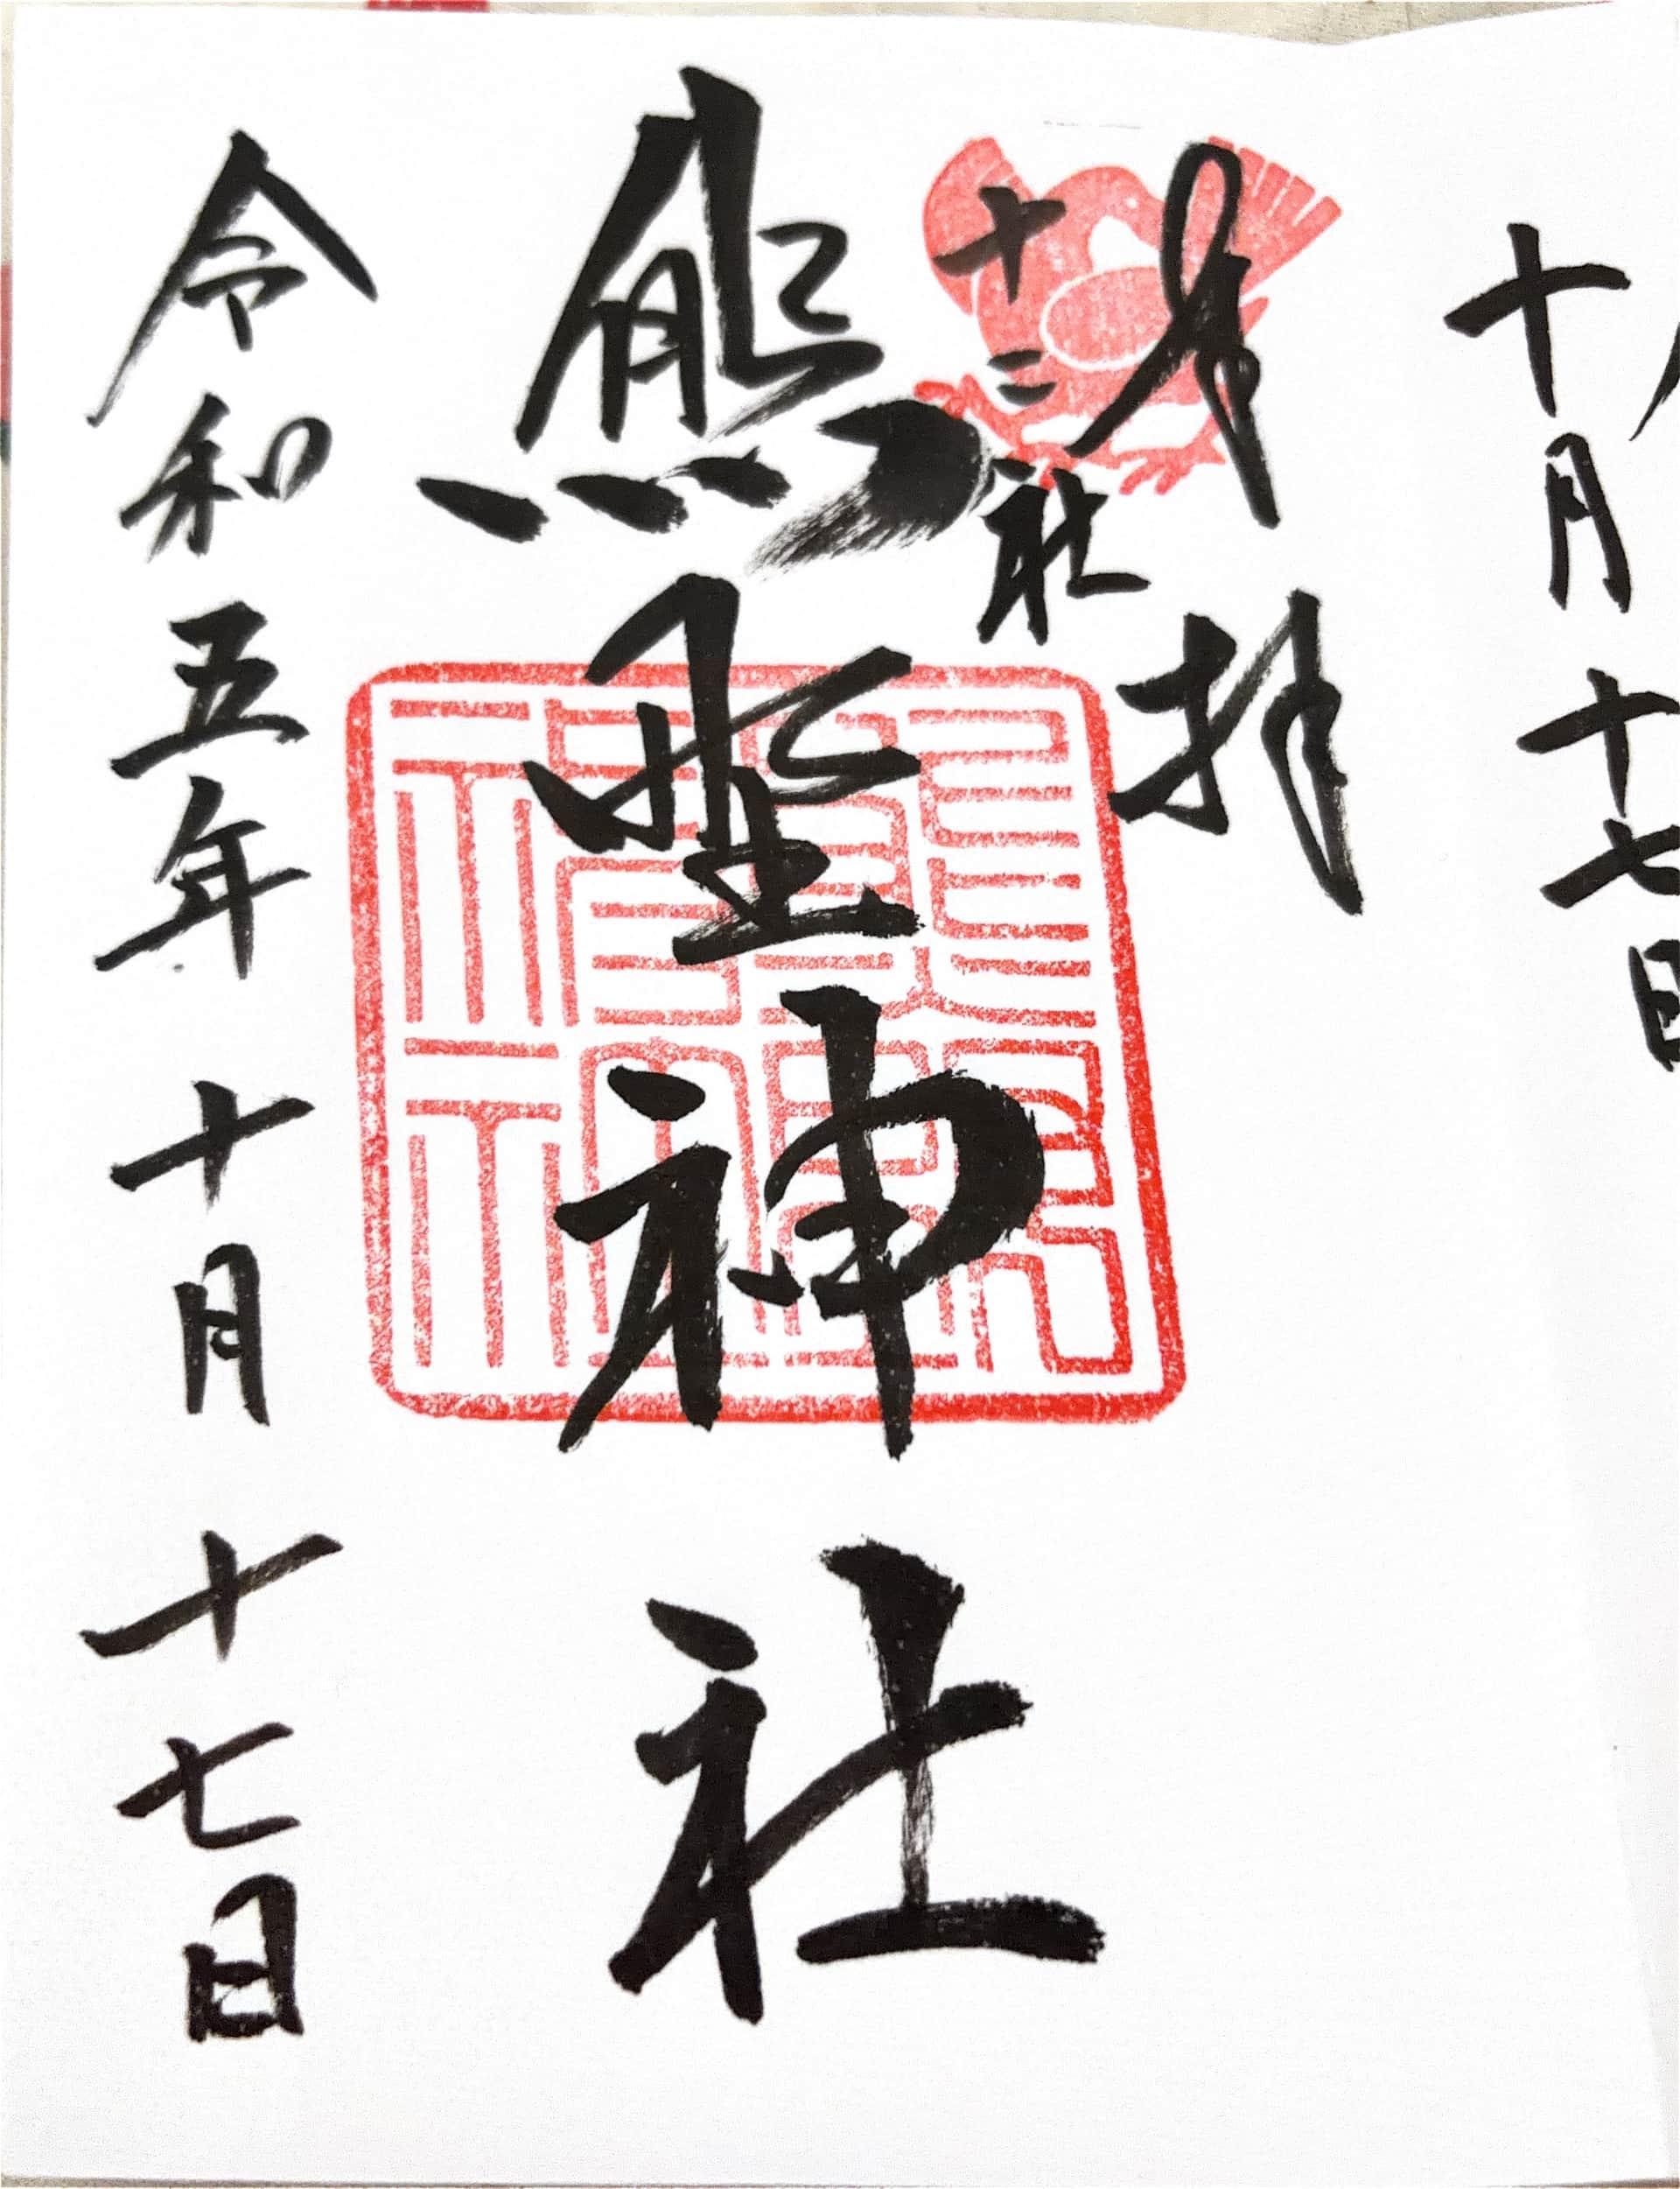 十月十七日
奉拝
十二社
熊野神社
令和五年十月十七日